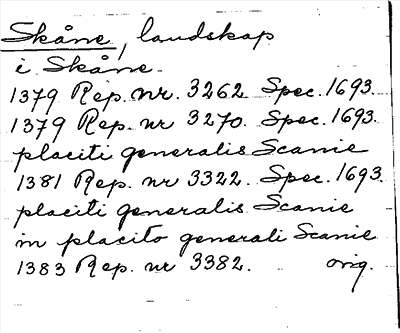 Skåne, landskap
i Skåne
1379 Rep. nr. 3262 Spec. 1693.
1379 Rep. nr 3270. Spec. 1693.
placiti generalis Scanie
1381 Rep. nr 3322. Spec. 1693.
placiti generalis Scanie
in placito generali Scanie
1383 Rep. nr 3382. orig.